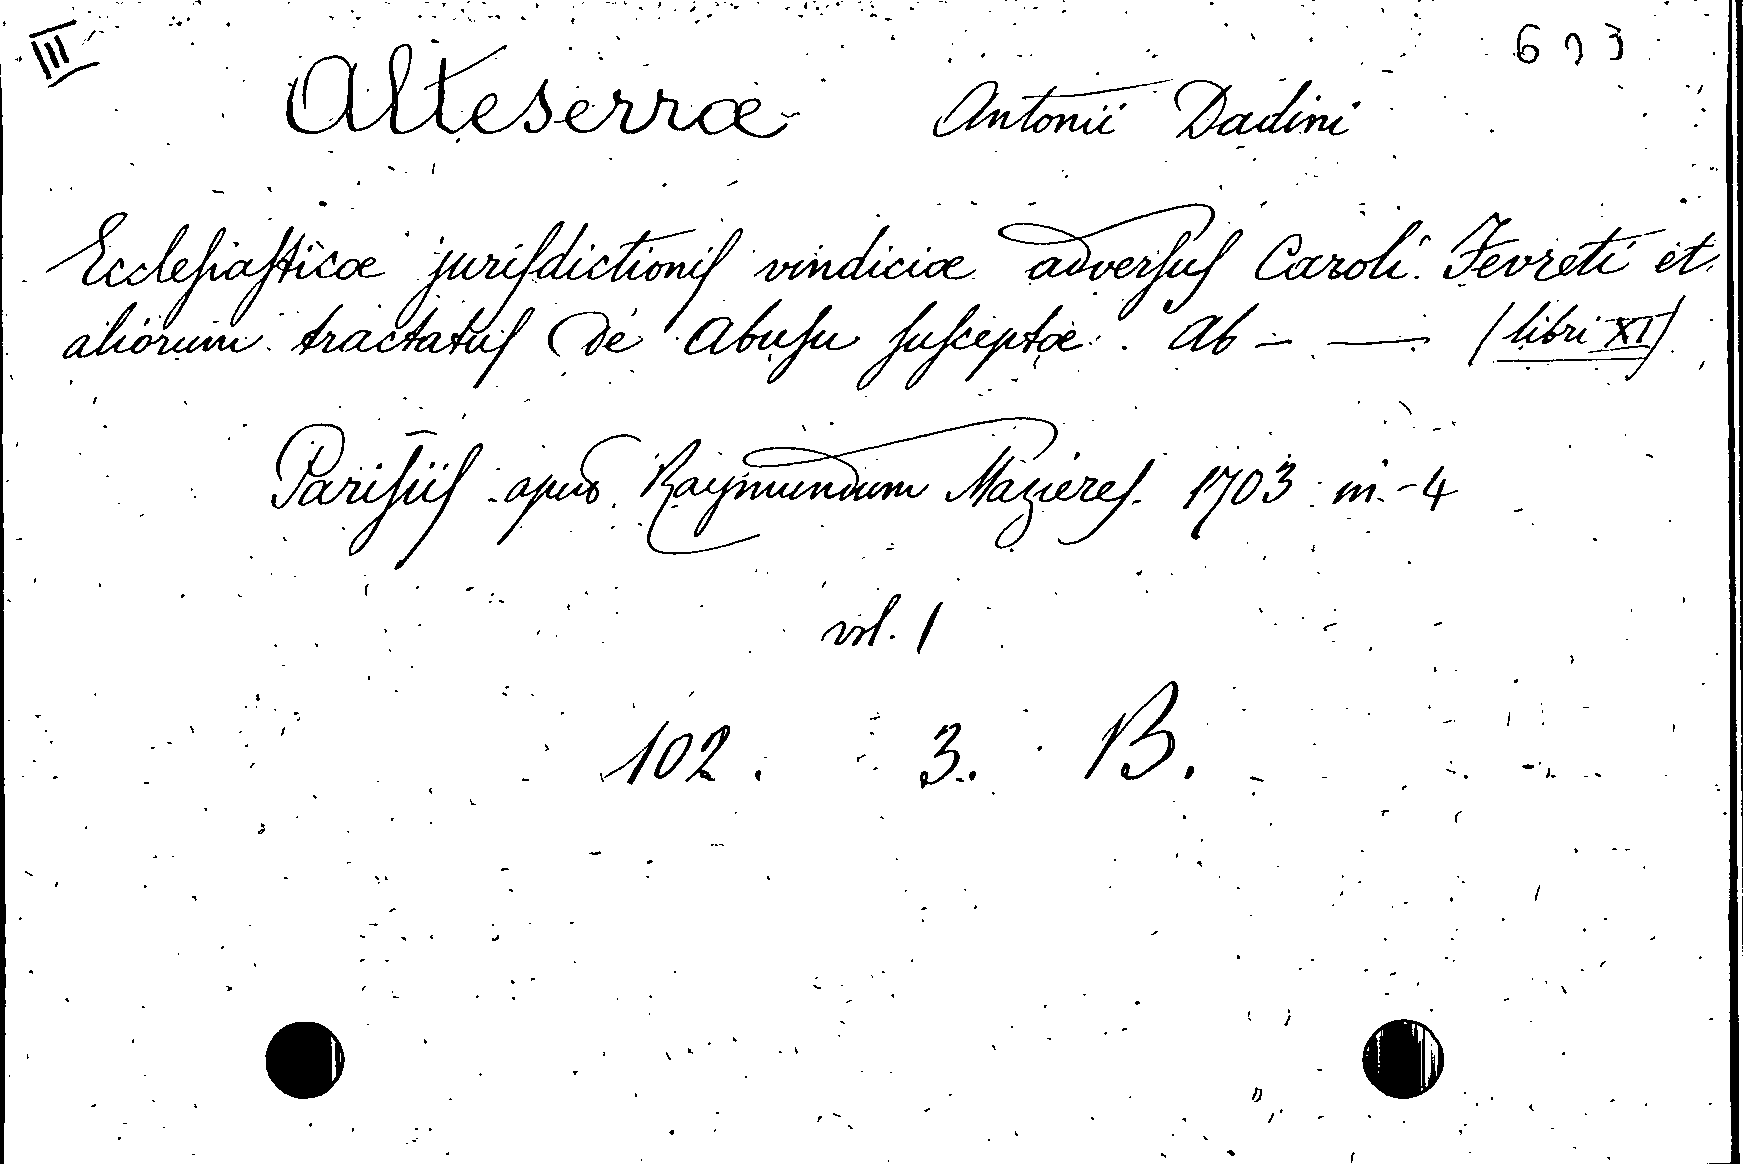 III
673
Alteserræ Antonii Dadini
Ecclesiasticæ jurisdictionis vindiciæ adversus Caroli Fevreti et
aliorum tractatus de Abusu susceptæ. Ab – — (libri XI)
Parisiis apud Raymundum Mazieres. 1703 in-4
vol. 1
102. 3. B.